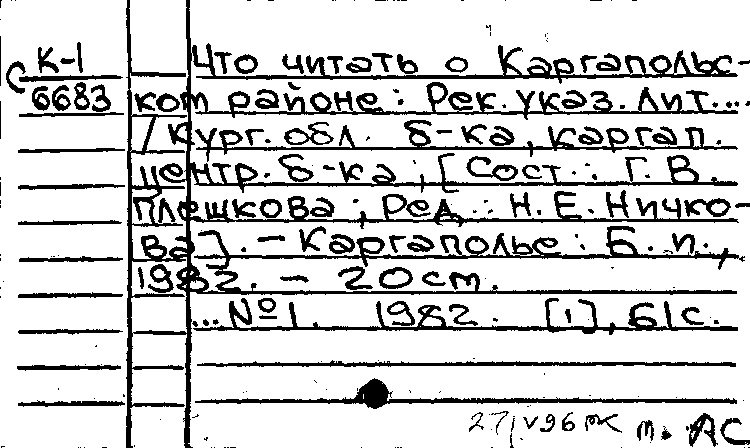 К-1
С 6683
Что читать о Каргапольс-
ком районе: Рек. указ. лит...
/ Кург. обл. б-ка, каргап.
центр. б-ка; [Сост.: Г. В.
Плешкова; Ред.: Н. Е. Ничко-
ва]. – Каргаполье: Б. и.,
1982. – 20 см.
...№1. 1982. [1], 61с.
27/V96
т. АС